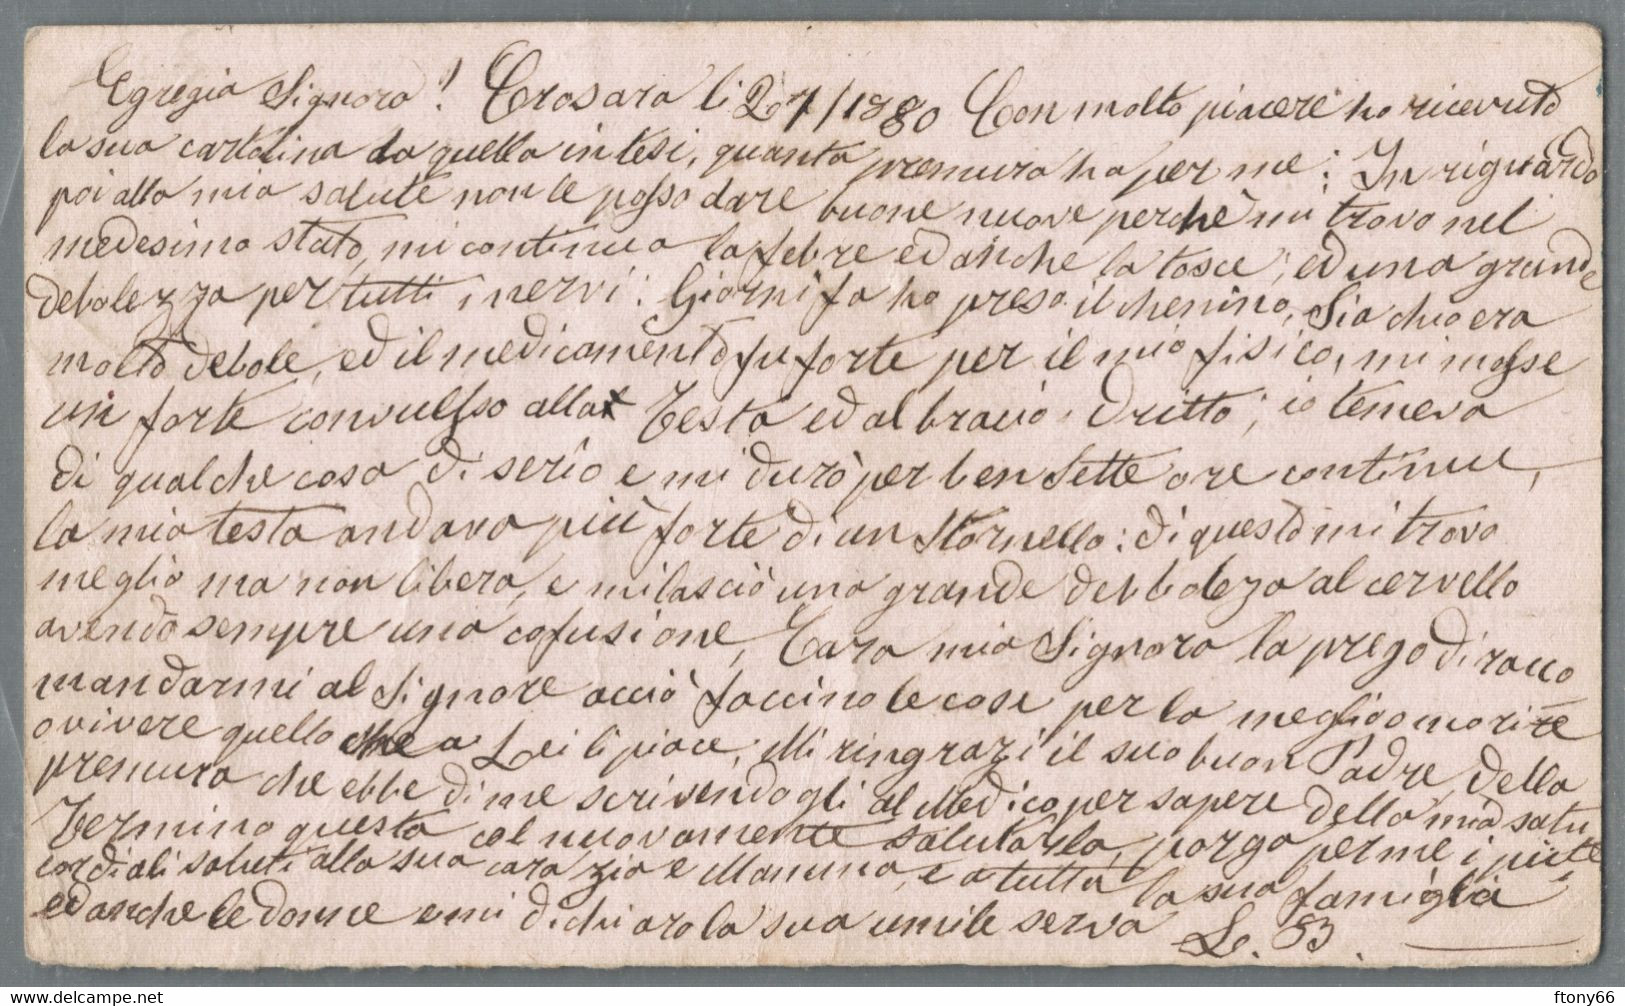 Egregia Signora! Crosara li 20 7/1880 Con molto piacere ho ricevuto
la sua cartolina da quella intesi, quanta premura ha per me: In riguardo
poi alla mia salute non le posso dare buone nuove perchè mi trovo nel
medesimo stato, mi continua la febre ed anche la tosce, ed una grande
debolezza per tutti i nervi: Giorni fa ho preso il chenino, Sia chio era
molto debole, ed il medicamento fu forte per il mio fisico, mi mosse
un forte convulsso alla testa ed al bracio dritto; io temeva
di qualche cosa di serio e mi durò per ben sette ore continue,
la mia testa andava più forte di un Stornello: di questo mi trovo
meglio ma non libera, e mi lasciò una grande debbolezza al cervello
avendo sempre una cofusione, Cara mia Signora la prego di racco
mandarmi al Signore acciò faccino le cose per la meglio o morire
o vivere quello che a Lei li piace; Mi ringrazi il suo buon Padre, della
premura che ebbe di me scrivendogli al Medico per sapere della mia salu
Termino questa col nuovamente salutarla, porga per me i più te
cordiali saluti alla sua cara zia e Mamma, e a tutta la sua famiglia
ed anche le donne e mi dichiaro la sua umile serva L. B.
ftony66